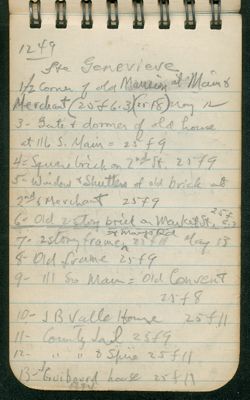 1249
Ste Genevieve
1/2 Corner of old Mansion at Main &
Merchant (25 f 6.3) (or f8) May 12
3- Gate & dormer of old house
at 116 S. Main = 25 f 9
4- Square brick on 2nd St. 25 f 9
5- Window & Shutters of old brick at
2nd & Merchant 25 f 9
6- Old 2 story brick on Market St. 25 f
7- 2 story frame 25 f 11 May 18
8- Old frame 25 f 9
9- 111 So Main = Old Convent
25 f 8
10- J B Valle House 25 f 11
11- County Jail 25 f 9
12- " " & Spire 25 f 11
13- Guibourd house 25 f 11